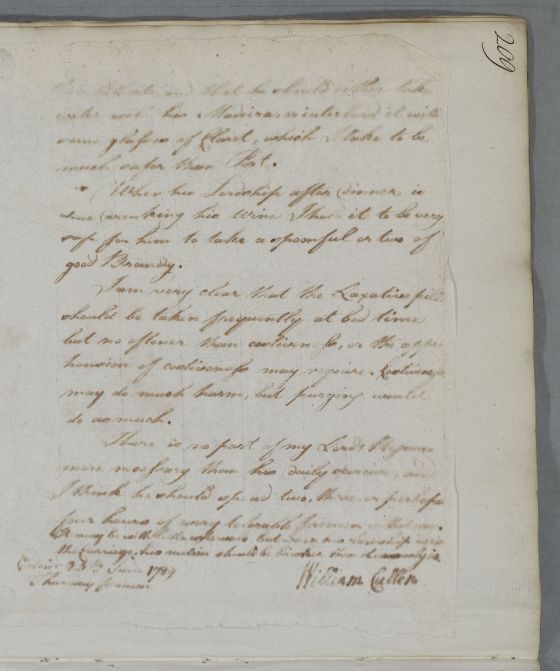 209
and that he should either take
water with his Madeira, or interlard it with
some glasses of Claret, which I take to be
much safer than Port.
When his Lordship after dinner is
drinking his wine I hold it to be very
safe for him to take a spoonful or two of
good Brandy.
I am very clear that the Laxative pill
should be taken frequently at bed time
but no oftener than costiveness, or the appre
hension of costiveness may require. Costiveness
may do much harm, but purging would
do as much.
There is no part of my Lords Regimen
more necessary than his daily exercise, and
I think he should spend two, three, or perhaps
four hours of every tolerable forenoon in that way.
It may be but when his Lordship
the Carriage, his motion should be brisker than it usually is.
Edinr 13th June 1784
Thursday forenoon
William Cullen